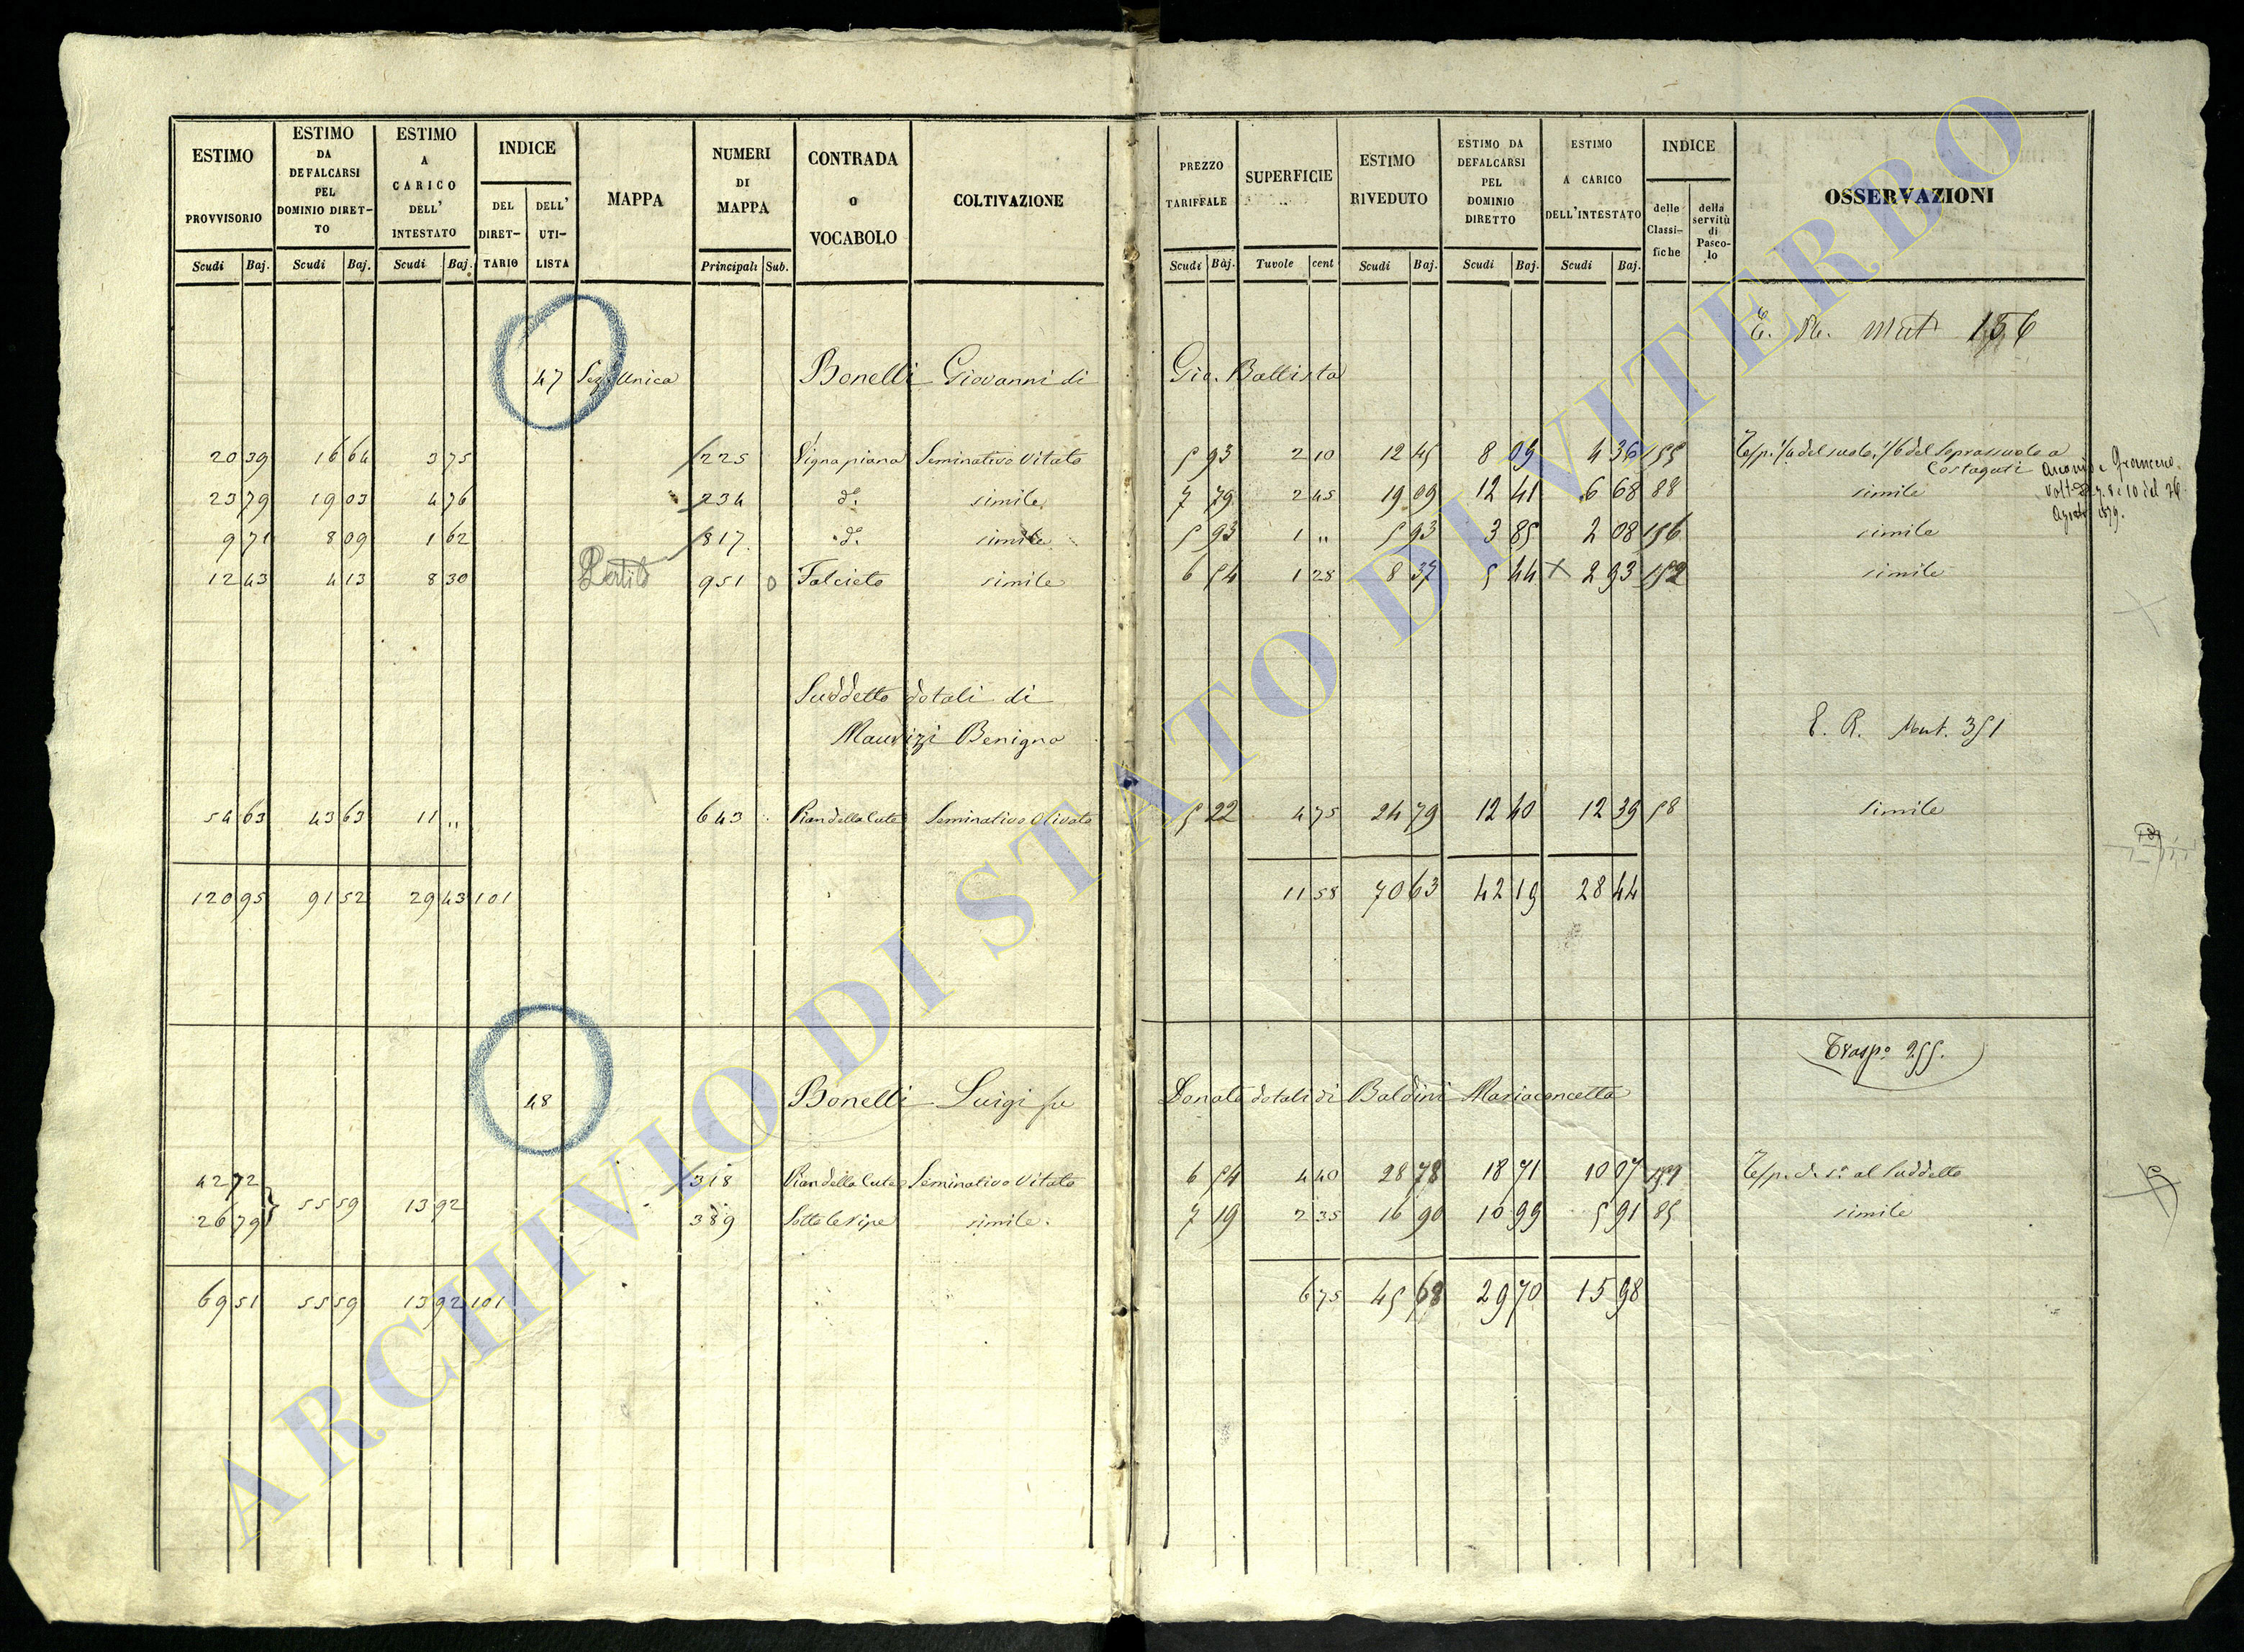 ESTIMO PROVVISORIO Scudi Baj.
ESTIMO DA DEFALCARSI PEL DOMINIO DIRET-TO Scudi Baj.
ESTIMO A CARICO DELL' INTESTATO Scudi Baj.
INDICE DEL DIRET-TARIO DELL' UTI-LISTA
MAPPA
NUMERI DI MAPPA Principali Sub.
CONTRADA O VOCABOLO
COLTIVAZIONE
PREZZO TARIFFALE Scudi Baj.
SUPERFICIE Tavole cent
ESTIMO RIVEDUTO Scudi Baj.
ESTIMO DA DEFALCARSI PEL DOMINIO DIRETTO Scudi Baj.
ESTIMO A CARICO DELL'INTESTATO Scudi Baj.
INDICE delle Classi-fiche della servitù di Pasco-lo
OSSERVAZIONI
E. R. Mut 156
47 Sez. Unica Bonelli Giovanni di Gio. Battista
20 39 16 64 3 75 225 Vigna piana Seminativo Vitato 5 93 2 10 12 45 8 09 4 36 155 Resp. 1/4 del suolo, 1/6 del Soprassuolo a Costaguti
23 79 19 03 4 76 234 do. simile 7 79 2 45 19 09 12 41 6 68 88 simile
9 71 8 09 1 62 817 do. simile 5 93 1 " 5 93 3 85 2 08 156 simile
12 43 4 13 8 30 951 0 Falcieto simile 6 54 1 28 8 37 5 44 X 2 93 152 simile
Suddetto dotali di
Maurizi Benigna
E. R. Mut. 351
54 63 43 63 11 " 643 Pian della Cute Seminativo Olivato 5 22 4 75 24 79 12 40 12 39 58 simile
120 95 91 52 29 43 101 11 58 70 63 42 19 28 44
Trasp° 255.
48 Bonelli Luigi fu Donato dotali di Baldini Mariaconcetta
42 72 55 59 13 92 318 Pian della Cute Seminativo Vitato 6 54 4 40 28 78 18 71 10 07 159 Resp. d. s. al Suddetto
26 79 389 Sotto le ripe simile 7 19 2 35 16 90 10 99 5 91 85 simile
69 51 55 59 13 92 101 6 75 45 68 29 70 15 98
ARCHIVIO DI STATO DI VITERBO